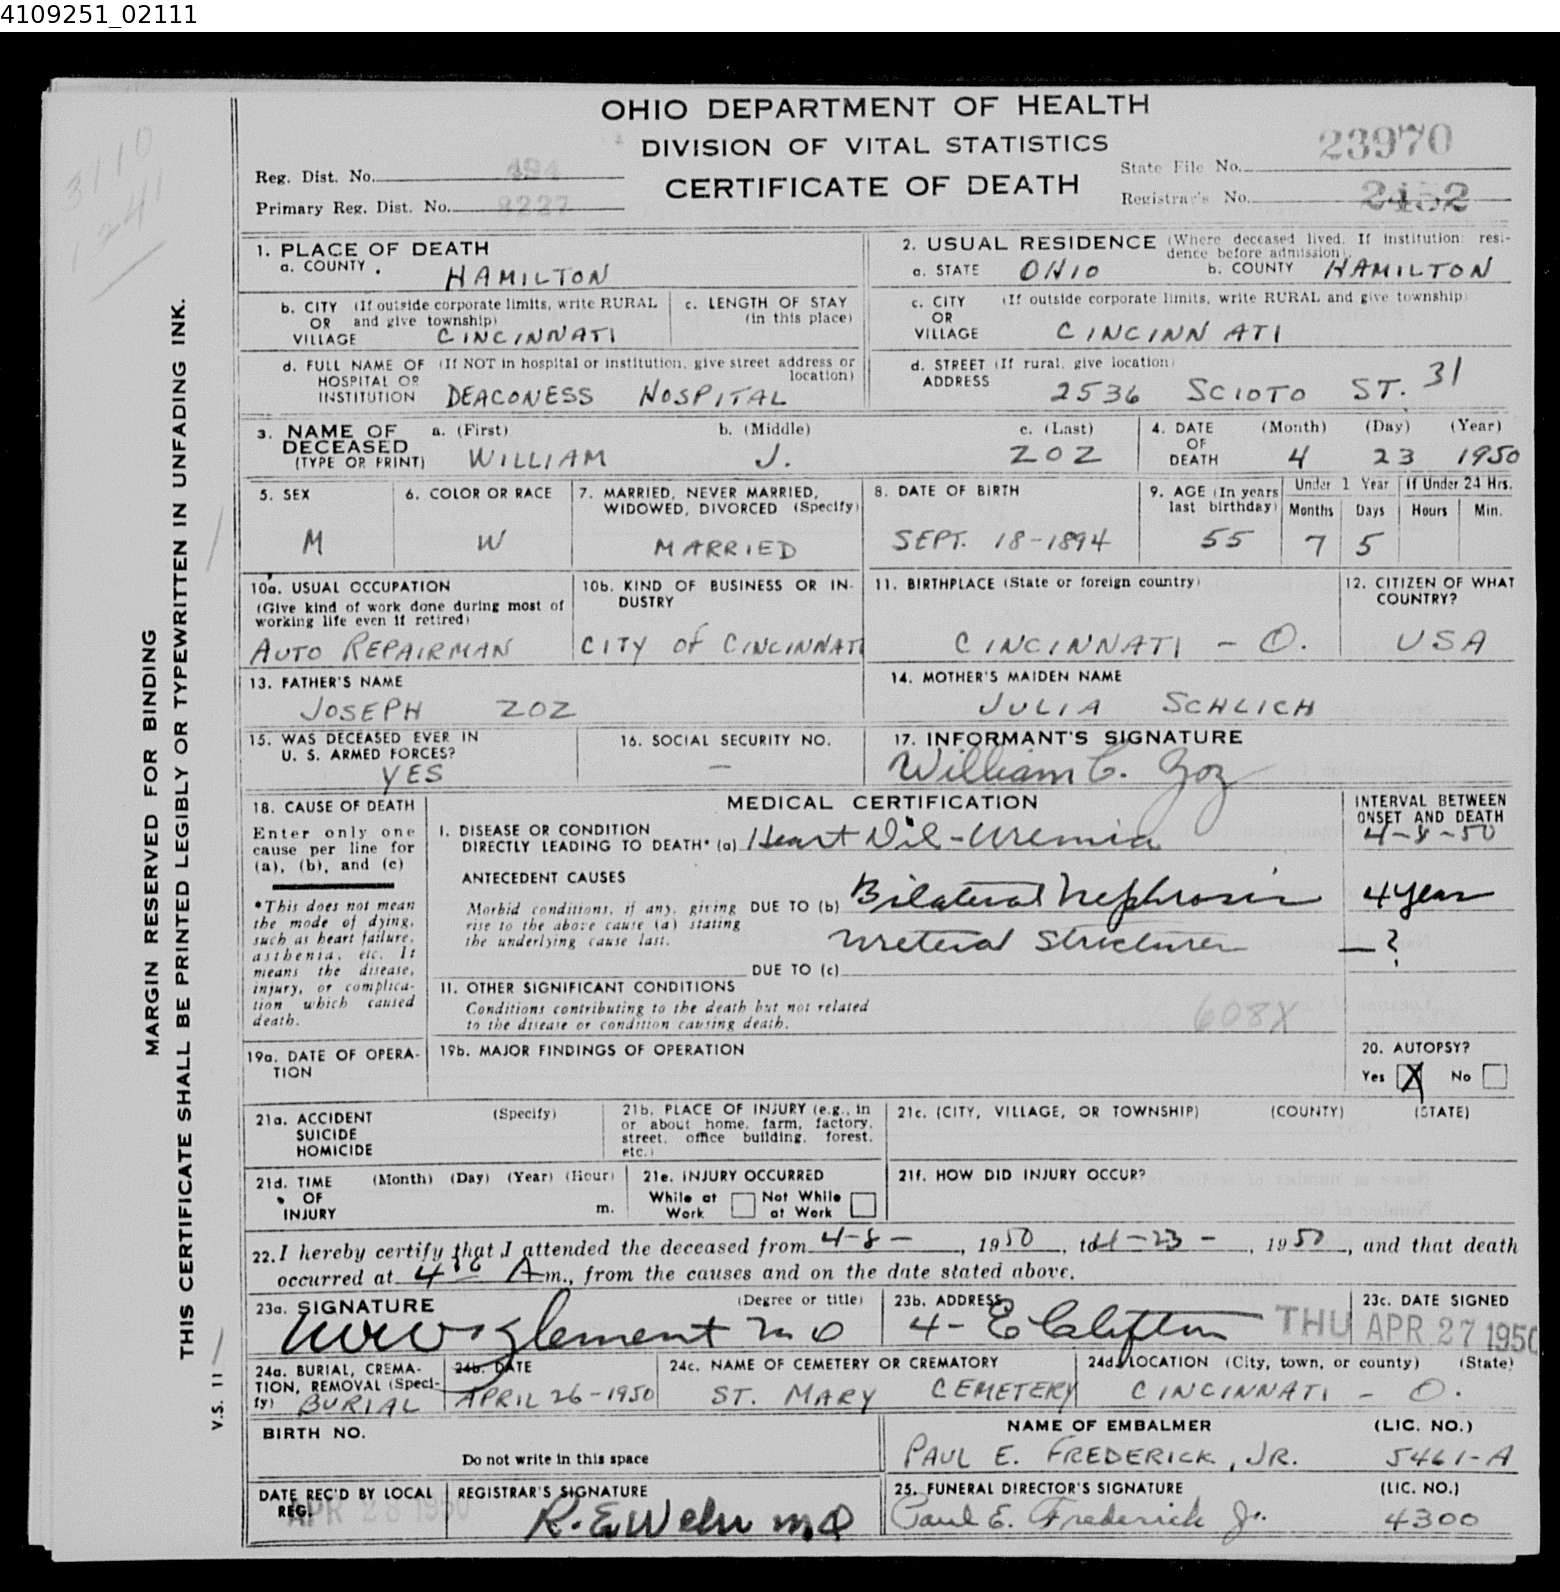 4109251_02111
OHIO DEPARTMENT OF HEALTH
DIVISION OF VITAL STATISTICS
CERTIFICATE OF DEATH
Reg. Dist. No. 494
Primary Reg. Dist. No. 8227
State File No. 23970
Registrar's No. 2452
3110
1241
MARGIN RESERVED FOR BINDING
THIS CERTIFICATE SHALL BE PRINTED LEGIBLY OR TYPEWRITTEN IN UNFADING INK.
V.S. 11
1. PLACE OF DEATH
a. COUNTY HAMILTON
b. CITY (If outside corporate limits, write RURAL
OR and give township)
VILLAGE CINCINNATI
c. LENGTH OF STAY
(in this place)
d. FULL NAME OF (If NOT in hospital or institution, give street address or
HOSPITAL OR location)
INSTITUTION DEACONESS HOSPITAL
2. USUAL RESIDENCE (Where deceased lived. If institution: resi-
dence before admission).
a. STATE OHIO b. COUNTY HAMILTON
c. CITY (If outside corporate limits, write RURAL and give township)
OR
VILLAGE CINCINNATI
d. STREET (If rural, give location)
ADDRESS 2536 SCIOTO ST. 31
3. NAME OF a. (First) b. (Middle) c. (Last)
DECEASED
(TYPE OR PRINT) WILLIAM J. ZOZ
4. DATE (Month) (Day) (Year)
OF
DEATH 4 23 1950
5. SEX
M
6. COLOR OR RACE
W
7. MARRIED, NEVER MARRIED,
WIDOWED, DIVORCED (Specify)
MARRIED
8. DATE OF BIRTH
SEPT. 18-1894
9. AGE (In years
last birthday)
55
Under 1 Year
Months Days
7 5
If Under 24 Hrs.
Hours Min.
10a. USUAL OCCUPATION
(Give kind of work done during most of
working life even if retired)
AUTO REPAIRMAN
10b. KIND OF BUSINESS OR IN-
DUSTRY
CITY OF CINCINNATI
11. BIRTHPLACE (State or foreign country)
CINCINNATI - O.
12. CITIZEN OF WHAT
COUNTRY?
USA
13. FATHER'S NAME
JOSEPH ZOZ
14. MOTHER'S MAIDEN NAME
JULIA SCHLICH
15. WAS DECEASED EVER IN
U. S. ARMED FORCES?
YES
16. SOCIAL SECURITY NO.
—
17. INFORMANT'S SIGNATURE
William C. Zoz
18. CAUSE OF DEATH
Enter only one
cause per line for
(a), (b), and (c)
*This does not mean
the mode of dying,
such as heart failure,
asthenia, etc. It
means the disease,
injury, or complica-
tion which caused
death.
MEDICAL CERTIFICATION
INTERVAL BETWEEN
ONSET AND DEATH
I. DISEASE OR CONDITION
DIRECTLY LEADING TO DEATH* (a) Heart Dil - Uremia 4-8-50
ANTECEDENT CAUSES
Morbid conditions, if any, giving
rise to the above cause (a) stating
the underlying cause last.
DUE TO (b) Bilateral Nephrosis 4 year
Ureteral Stricture — ?
DUE TO (c)
II. OTHER SIGNIFICANT CONDITIONS
Conditions contributing to the death but not related
to the disease or condition causing death.
608X
19a. DATE OF OPERA-
TION
19b. MAJOR FINDINGS OF OPERATION
20. AUTOPSY?
Yes X No
21a. ACCIDENT (Specify)
SUICIDE
HOMICIDE
21b. PLACE OF INJURY (e.g., in
or about home, farm, factory,
street, office building, forest,
etc.)
21c. (CITY, VILLAGE, OR TOWNSHIP) (COUNTY) (STATE)
21d. TIME (Month) (Day) (Year) (Hour)
OF
INJURY m.
21e. INJURY OCCURRED
While at Not While
Work at Work
21f. HOW DID INJURY OCCUR?
22. I hereby certify that I attended the deceased from 4-8-, 1950, to 4-23-, 1950, and that death
occurred at 4 A m., from the causes and on the date stated above.
23a. SIGNATURE (Degree or title)
Clement MD
23b. ADDRESS
4- E Clifton
23c. DATE SIGNED
THU APR 27 1950
24a. BURIAL, CREMA-
TION, REMOVAL (Speci-
fy) BURIAL
24b. DATE
APRIL 26-1950
24c. NAME OF CEMETERY OR CREMATORY
ST. MARY CEMETERY
24d. LOCATION (City, town, or county) (State)
CINCINNATI - O.
BIRTH NO.
Do not write in this space
NAME OF EMBALMER (LIC. NO.)
PAUL E. FREDERICK, JR. 5461-A
DATE REC'D BY LOCAL
REG.
APR 28 1950
REGISTRAR'S SIGNATURE
R. E. Wehr MD
25. FUNERAL DIRECTOR'S SIGNATURE (LIC. NO.)
Paul E. Frederick Jr. 4300